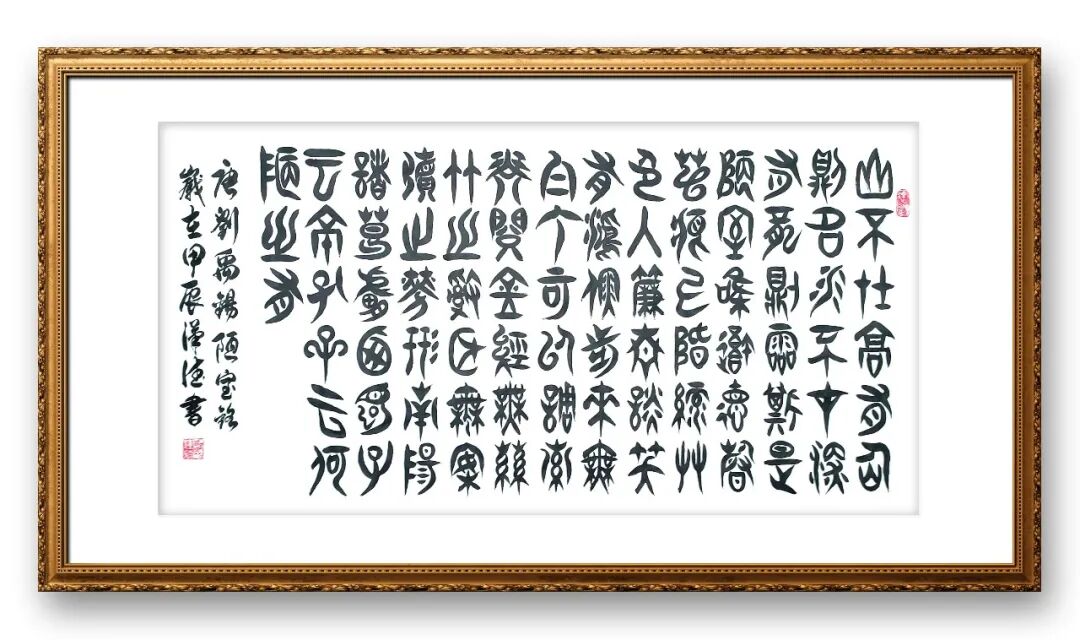 山不在高有仙
則名水不在深
有龍則靈斯是
陋室唯吾德馨
苔痕上階綠草
色入簾青談笑
有鴻儒往來無
白丁可以調素
琴閱金經無絲
竹之亂耳無案
牘之勞形南陽
諸葛廬西蜀子
云亭孔子云何
陋之有
唐劉禹錫陋室銘
歲在甲辰漢書